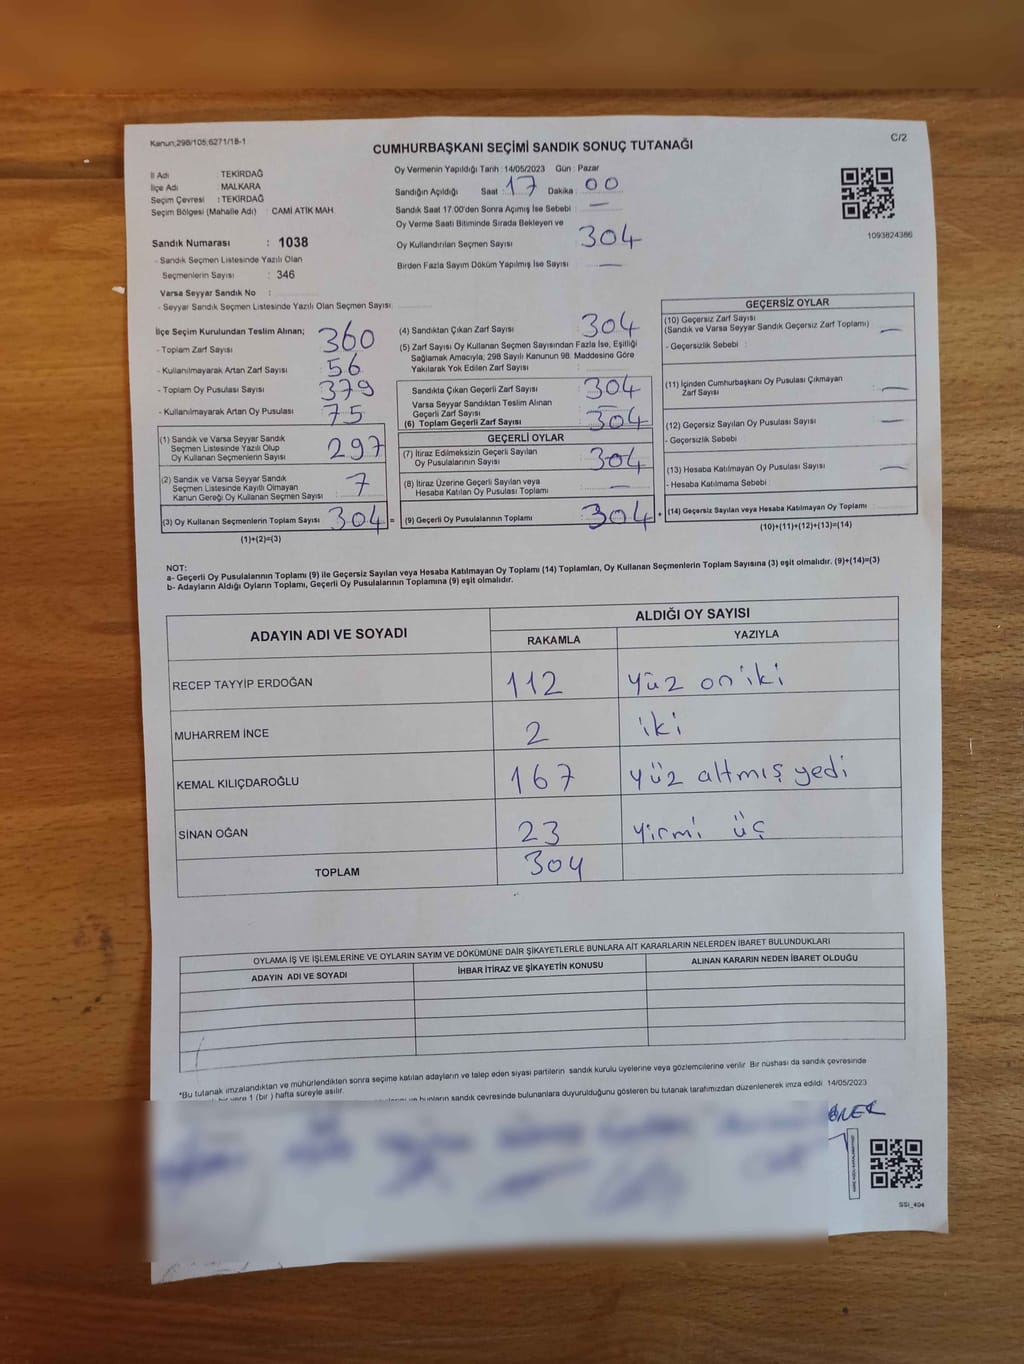 Kanun;298/105;6271/18-1
C/2
CUMHURBAŞKANI SEÇİMİ SANDIK SONUÇ TUTANAĞI
İl Adı : TEKİRDAĞ
İlçe Adı : MALKARA
Seçim Çevresi : TEKİRDAĞ
Seçim Bölgesi (Mahalle Adı) : CAMİ ATİK MAH
Sandık Numarası : 1038
- Sandık Seçmen Listesinde Yazılı Olan
Seçmenlerin Sayısı : 346
Varsa Seyyar Sandık No :
- Seyyar Sandık Seçmen Listesinde Yazılı Olan Seçmen Sayısı:
Oy Vermenin Yapıldığı Tarih : 14/05/2023 Gün : Pazar
Sandığın Açıldığı Saat : 17 Dakika : 00
Sandık Saat 17:00'den Sonra Açımış İse Sebebi : —
Oy Verme Saati Bitiminde Sırada Bekleyen ve
Oy Kullandırılan Seçmen Sayısı : 304
Birden Fazla Sayım Döküm Yapılmış İse Sayısı : —
1093824386
İlçe Seçim Kurulundan Teslim Alınan;
- Toplam Zarf Sayısı : 360
- Kullanılmayarak Artan Zarf Sayısı : 56
- Toplam Oy Pusulası Sayısı : 379
- Kullanılmayarak Artan Oy Pusulası : 75
(1) Sandık ve Varsa Seyyar Sandık
Seçmen Listesinde Yazılı Olup
Oy Kullanan Seçmenlerin Sayısı : 297
(2) Sandık ve Varsa Seyyar Sandık
Seçmen Listesinde Kayıtlı Olmayan
Kanun Gereği Oy Kullanan Seçmen Sayısı : 7
(3) Oy Kullanan Seçmenlerin Toplam Sayısı : 304 =
(1)+(2)=(3)
(4) Sandıktan Çıkan Zarf Sayısı : 304
(5) Zarf Sayısı Oy Kullanan Seçmen Sayısından Fazla İse, Eşitliği
Sağlamak Amacıyla, 298 Sayılı Kanunun 98. Maddesine Göre
Yakılarak Yok Edilen Zarf Sayısı :
Sandıkta Çıkan Geçerli Zarf Sayısı : 304
Varsa Seyyar Sandıktan Teslim Alınan
Geçerli Zarf Sayısı : —
(6) Toplam Geçerli Zarf Sayısı : 304
GEÇERLİ OYLAR
(7) İtiraz Edilmeksizin Geçerli Sayılan
Oy Pusulalarının Sayısı : 304
(8) İtiraz Üzerine Geçerli Sayılan veya
Hesaba Katılan Oy Pusulası Toplamı : —
(9) Geçerli Oy Pusulalarının Toplamı : 304 +
GEÇERSİZ OYLAR
(10) Geçersiz Zarf Sayısı
(Sandık ve Varsa Seyyar Sandık Geçersiz Zarf Toplamı) : —
- Geçersizlik Sebebi :
(11) İçinden Cumhurbaşkanı Oy Pusulası Çıkmayan
Zarf Sayısı : —
(12) Geçersiz Sayılan Oy Pusulası Sayısı : —
- Geçersizlik Sebebi
(13) Hesaba Katılmayan Oy Pusulası Sayısı : —
- Hesaba Katılmama Sebebi
(14) Geçersiz Sayılan veya Hesaba Katılmayan Oy Toplamı :
(10)+(11)+(12)+(13)=(14)
NOT:
a- Geçerli Oy Pusulalarının Toplamı (9) ile Geçersiz Sayılan veya Hesaba Katılmayan Oy Toplamı (14) Toplamları, Oy Kullanan Seçmenlerin Toplam Sayısına (3) eşit olmalıdır. (9)+(14)=(3)
b- Adayların Aldığı Oyların Toplamı, Geçerli Oy Pusulalarının Toplamına (9) eşit olmalıdır.
ADAYIN ADI VE SOYADI
ALDIĞI OY SAYISI
RAKAMLA YAZIYLA
RECEP TAYYİP ERDOĞAN 112 yüz oniki
MUHARREM İNCE 2 iki
KEMAL KILIÇDAROĞLU 167 yüz altmış yedi
SİNAN OĞAN 23 yirmi üç
TOPLAM 304
OYLAMA İŞ VE İŞLEMLERİNE VE OYLARIN SAYIM VE DÖKÜMÜNE DAİR ŞİKAYETLERLE BUNLARA AİT KARARLARIN NELERDEN İBARET BULUNDUKLARI
ADAYIN ADI VE SOYADI İHBAR İTİRAZ VE ŞİKAYETİN KONUSU ALINAN KARARIN NEDEN İBARET OLDUĞU
*Bu tutanak imzalandıktan ve mühürlendikten sonra seçime katılan adayların ve talep eden siyasi partilerin sandık kurulu üyelerine veya gözlemcilerine verilir. Bir nüshası da sandık çevresinde
yere 1 (bir ) hafta süreyle asılır.
bunların sandık çevresinde bulunanlara duyurulduğunu gösteren bu tutanak tarafımızdan düzenlenerek imza edildi 14/05/2023
SSI_404